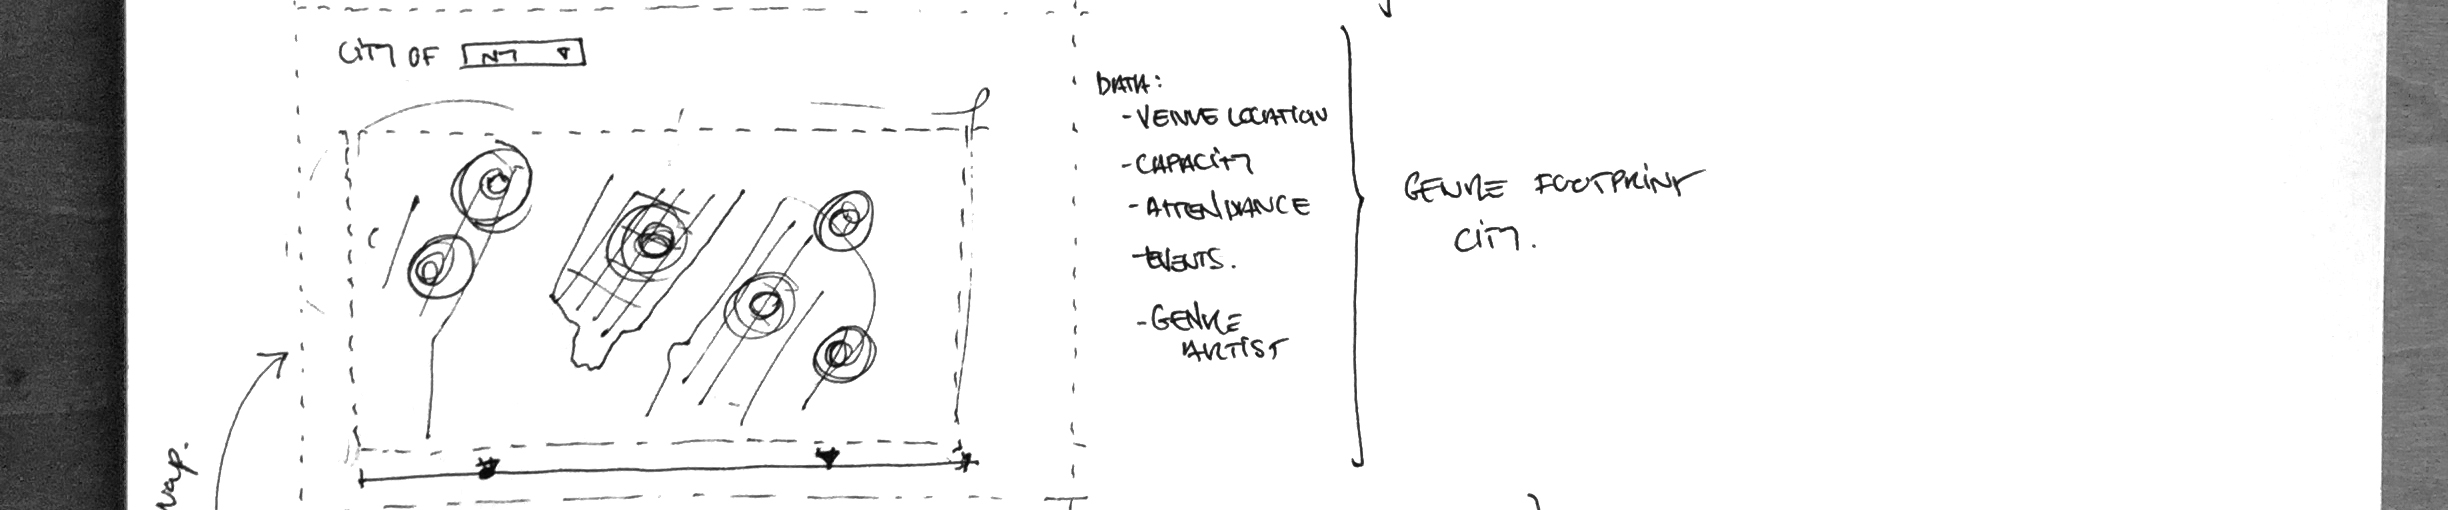 CITY OF NY
DATA:
- VENUE LOCATION
- CAPACITY
- ATTENDANCE
- EVENTS.
- GENRE
ARTIST
GENRE FOOTPRINT
CITY.